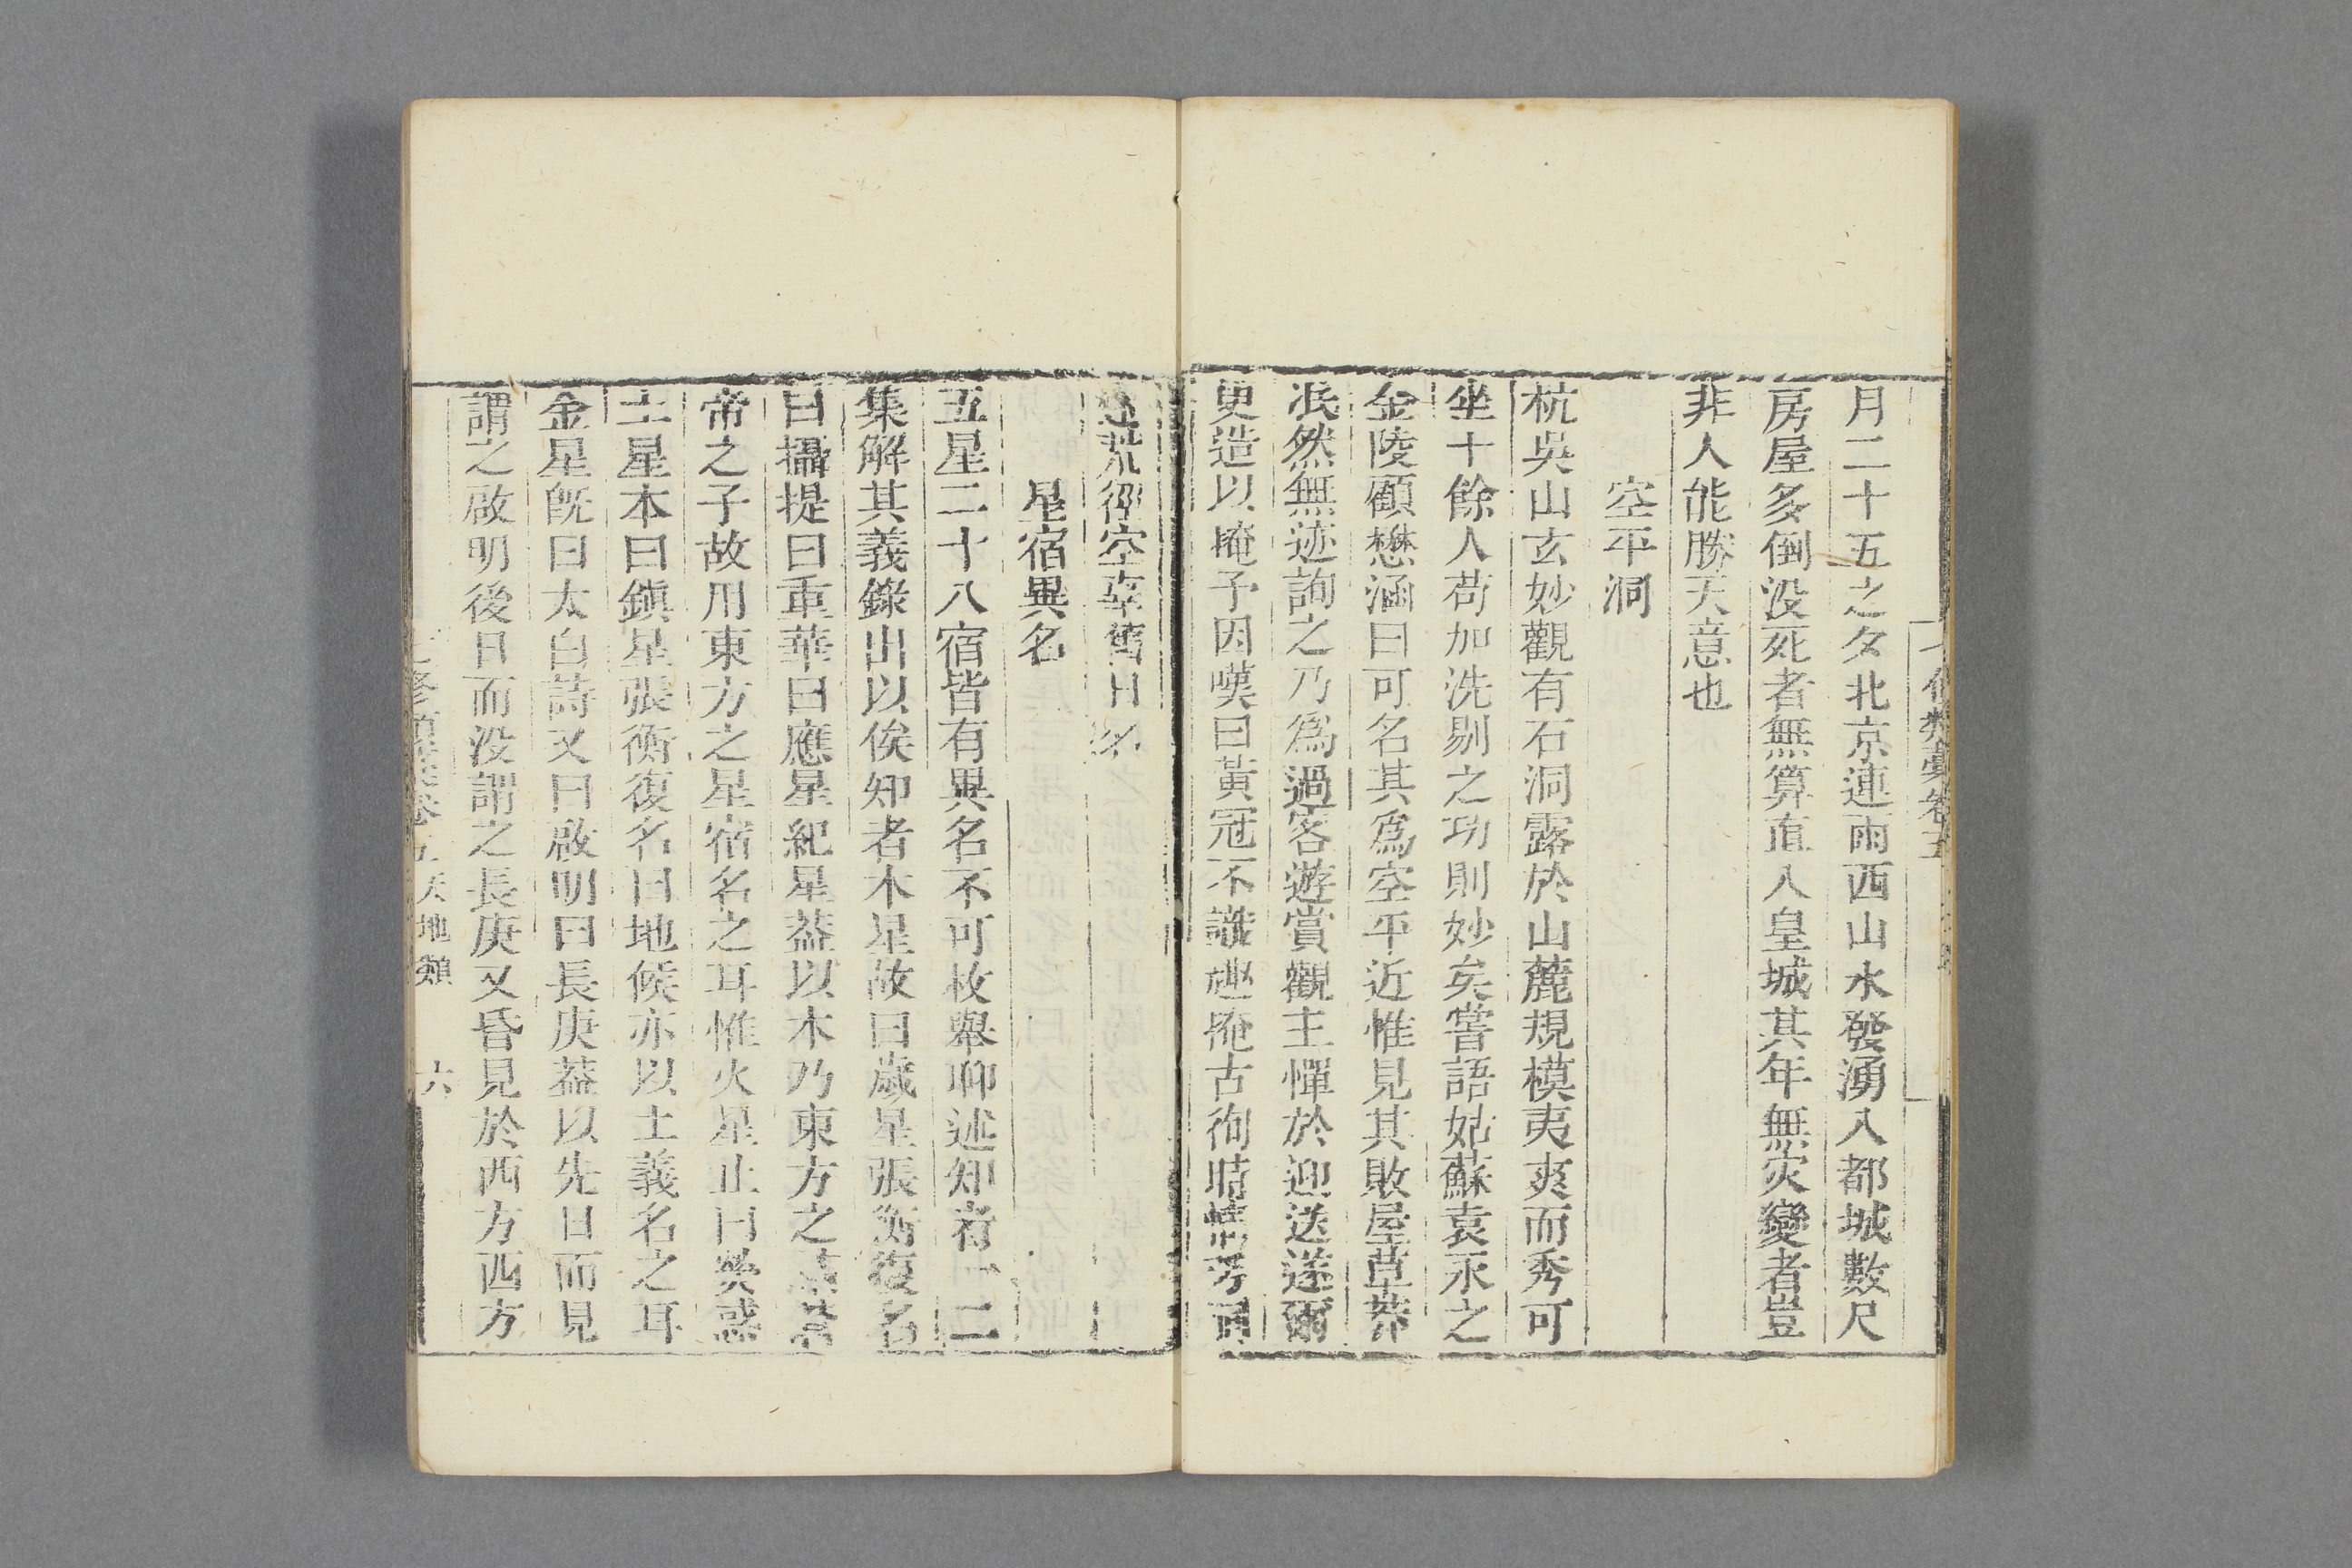 七修類稾卷五
月二十五之夕北京連雨西山水發湧入都城數尺
房屋多倒没死者無算直入皇城其年無灾變者豈
非人能勝天意也
空平洞
杭吳山玄妙觀有石洞露於山麓規模夷爽而秀可
坐十餘人苟加洗剔之功則妙矣嘗語姑蘇袁永之
金陵顧懋涵曰可名其爲空平近惟見其敗屋草莽
泯然無迹詢之乃爲過客遊賞觀主憚於迎送遂爾
更造以掩予因嘆曰黃冠不識趣掩古徇時情
荒徑空
星宿異名
五星二十八宿皆有異名不可枚舉聊述知者一二
集解其義錄出以俟知者木星故曰歲星張衡復名
曰攝提曰重華曰應星紀星葢以木乃東方之
帝之子故用東方之星宿名之耳惟火星止曰熒惑
土星本曰鎭星張衡復名曰地候亦以土義名之耳
金星旣曰太白詩又曰啟明曰長庚葢以先日而見
謂之啟明後日而没謂之長庚又昏見於西方西方
七修類稾卷五天地類 六